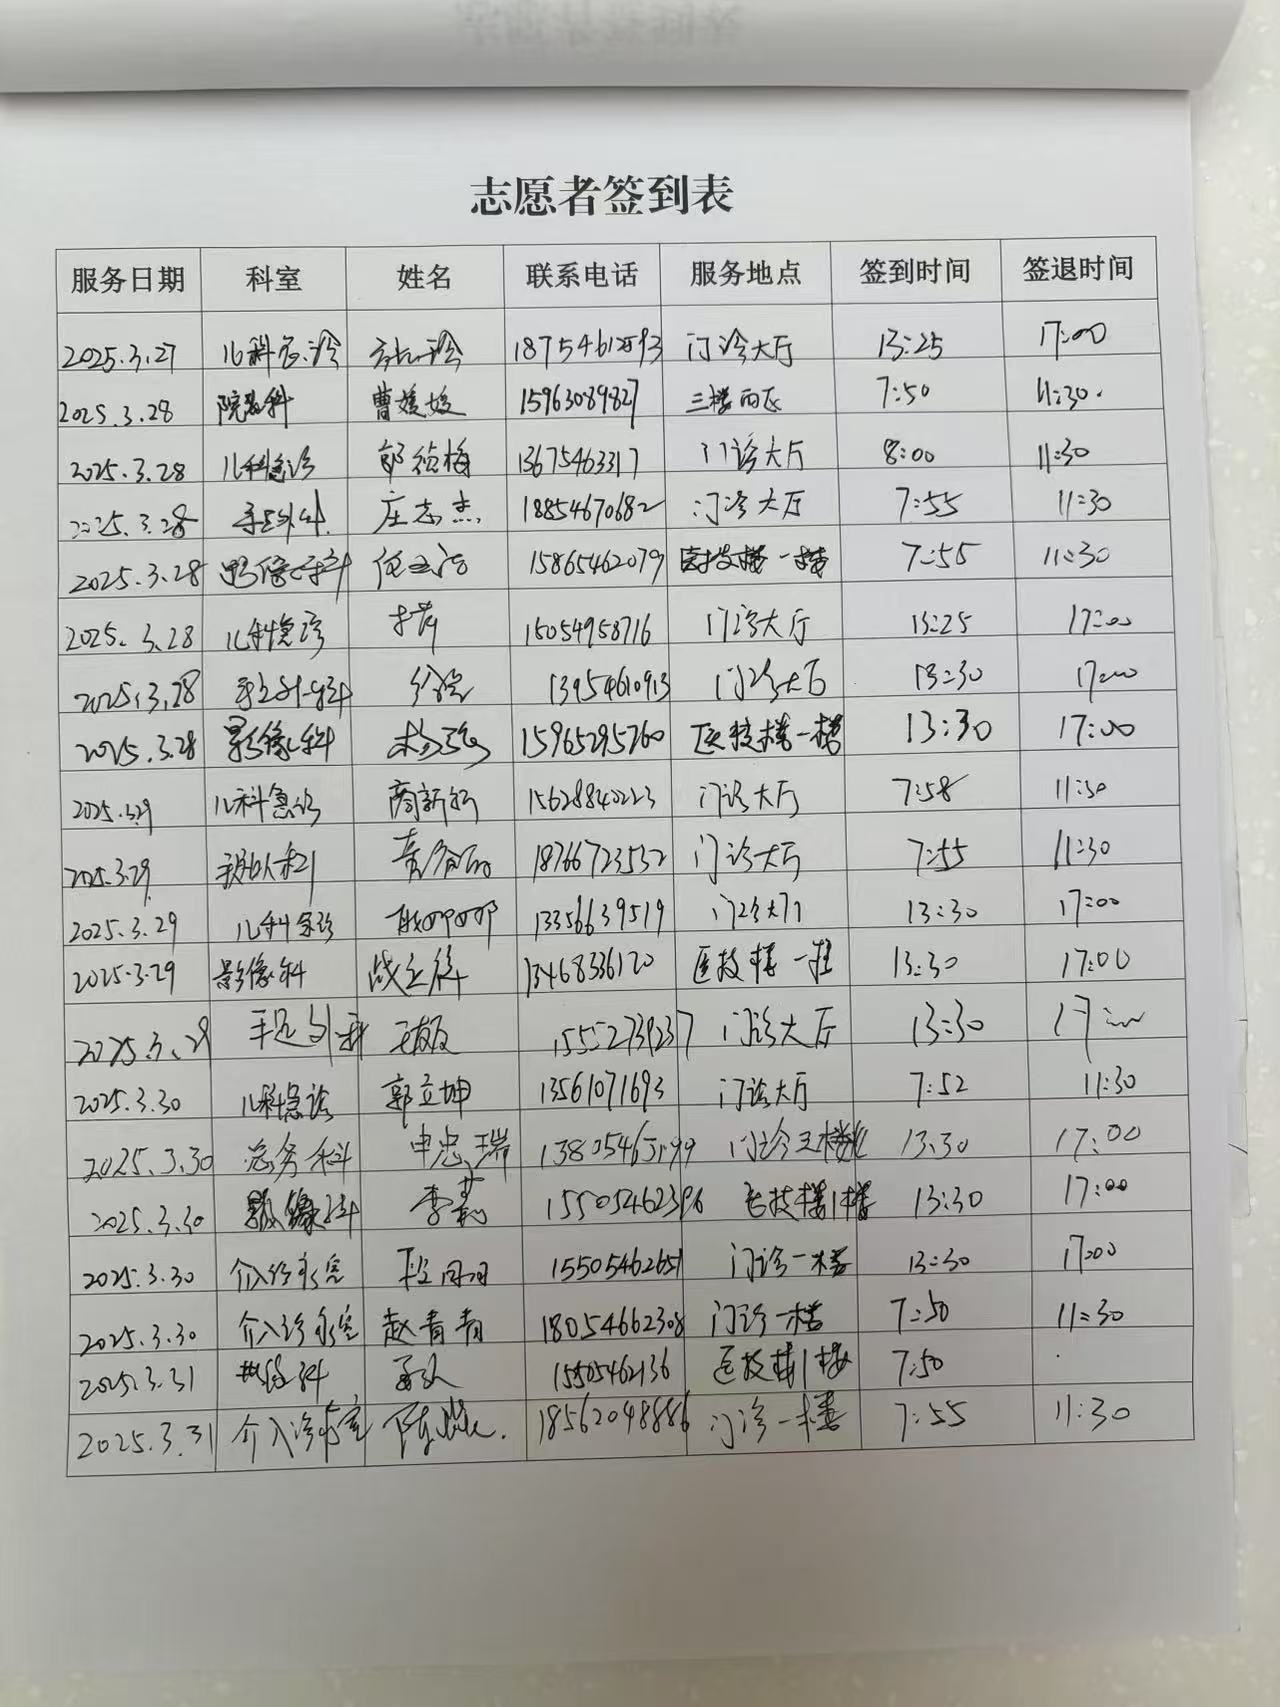 志愿者签到表
服务日期 科室 姓名 联系电话 服务地点 签到时间 签退时间
2025.3.27 儿科急诊 18754612593 门诊大厅 13:25 17:00
2025.3.28 院感科 曹媛媛 15963089827 三楼西区 7:50 11:30.
2025.3.28 儿科急诊 郭祯梅 13675463317 门诊大厅 8:00 11:30
2025.3.28 手足外科. 庄志杰 18854670682 门诊大厅 7:55 11:30
2025.3.28 影像科 15865462079 医技楼一楼 7:55 11:30
2025.3.28 儿科急诊 15054958716 门诊大厅 13:25 17:00
2025.3.28 手足外科 徐 13954610913 门诊大厅 13:30 17:00
2025.3.28 影像科 杨强 15965295760 医技楼一楼 13:30 17:00
2025.3.29 儿科急诊 商新红 15628840223 门诊大厅 7:58 11:30
2025.3.29 18766723532 门诊大厅 7:55 11:30
2025.3.29 儿科急诊 耿 13356639519 门诊大厅 13:30 17:00
2025.3.29 影像科 战 13468336120 医技楼一楼 13:30 17:00
2025.3.29 手足外科 王 15552739237 门诊大厅 13:30 17:00
2025.3.30 儿科急诊 郭立坤 13561071693 门诊大厅 7:52 11:30
2025.3.30 总务科 申忠瑞 13805463199 门诊三楼北 13:30 17:00
2025.3.30 影像科 李莉 15505462396 医技楼1楼 13:30 17:00
2025.3.30 介入诊疗室 段 15505462651 门诊一楼 13:30 17:00
2025.3.30 介入诊疗室 赵青青 18054662308 门诊一楼 7:50 11:30
2025.3.31 15505462136 医技楼1楼 7:50
2025.3.31 介入诊疗室 陈 18562048886 门诊一楼 7:55 11:30